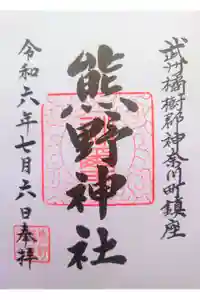 武州橘樹郡神奈川町鎮座
熊野神社
令和六年七月六日
奉拝